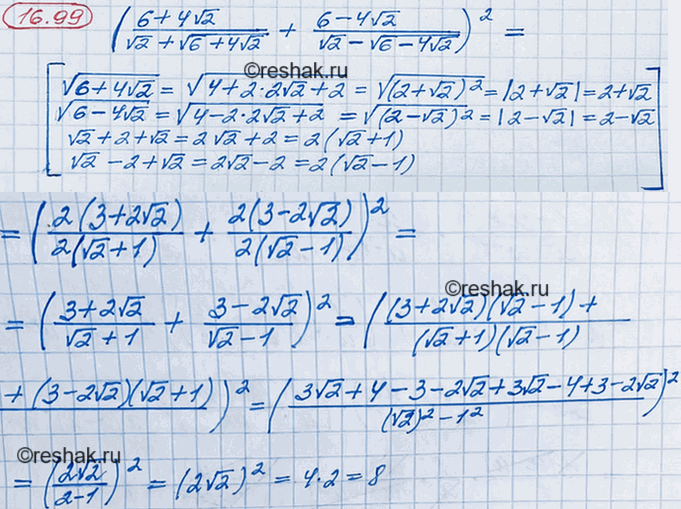 16.99 ((6+4√2)/(√2+√(6+4√2)) + (6-4√2)/(√2-√(6-4√2)))² =
©reshak.ru
[√(6+4√2) = √(4+2·2√2+2) = √((2+√2)²) = |2+√2| = 2+√2
√(6-4√2) = √(4-2·2√2+2) = √((2-√2)²) = |2-√2| = 2-√2
√2+2+√2 = 2√2+2 = 2(√2+1)
√2-2+√2 = 2√2-2 = 2(√2-1)]
= (2(3+2√2)/(2(√2+1)) + 2(3-2√2)/(2(√2-1)))² =
©reshak.ru
= ((3+2√2)/(√2+1) + (3-2√2)/(√2-1))² = ((3+2√2)(√2-1)+ / (√2+1)(√2-1)
+(3-2√2)(√2+1))² = ((3√2+4-3-2√2+3√2-4+3-2√2)/((√2)²-1²))²
©reshak.ru
= (2√2/(2-1))² = (2√2)² = 4·2 = 8